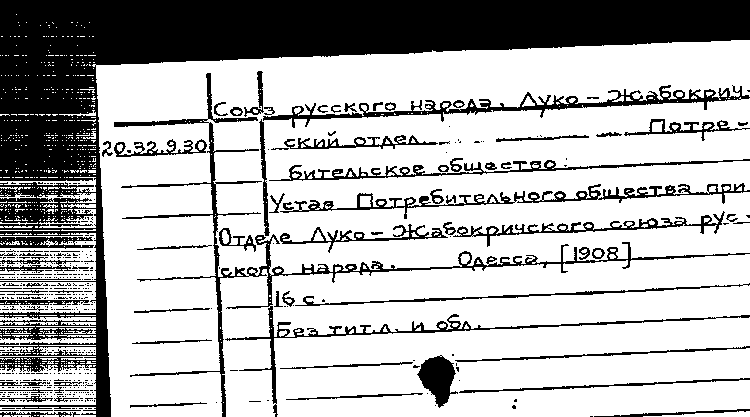 Союз русского народа. Луко-Жабокрич-
20.32.9.30 ский отдел. Потре-
бительское общество.
Устав Потребительного общества при
Отделе Луко-Жабокричского союза рус-
ского народа. Одесса, [1908]
16 с.
Без тит.л. и обл.